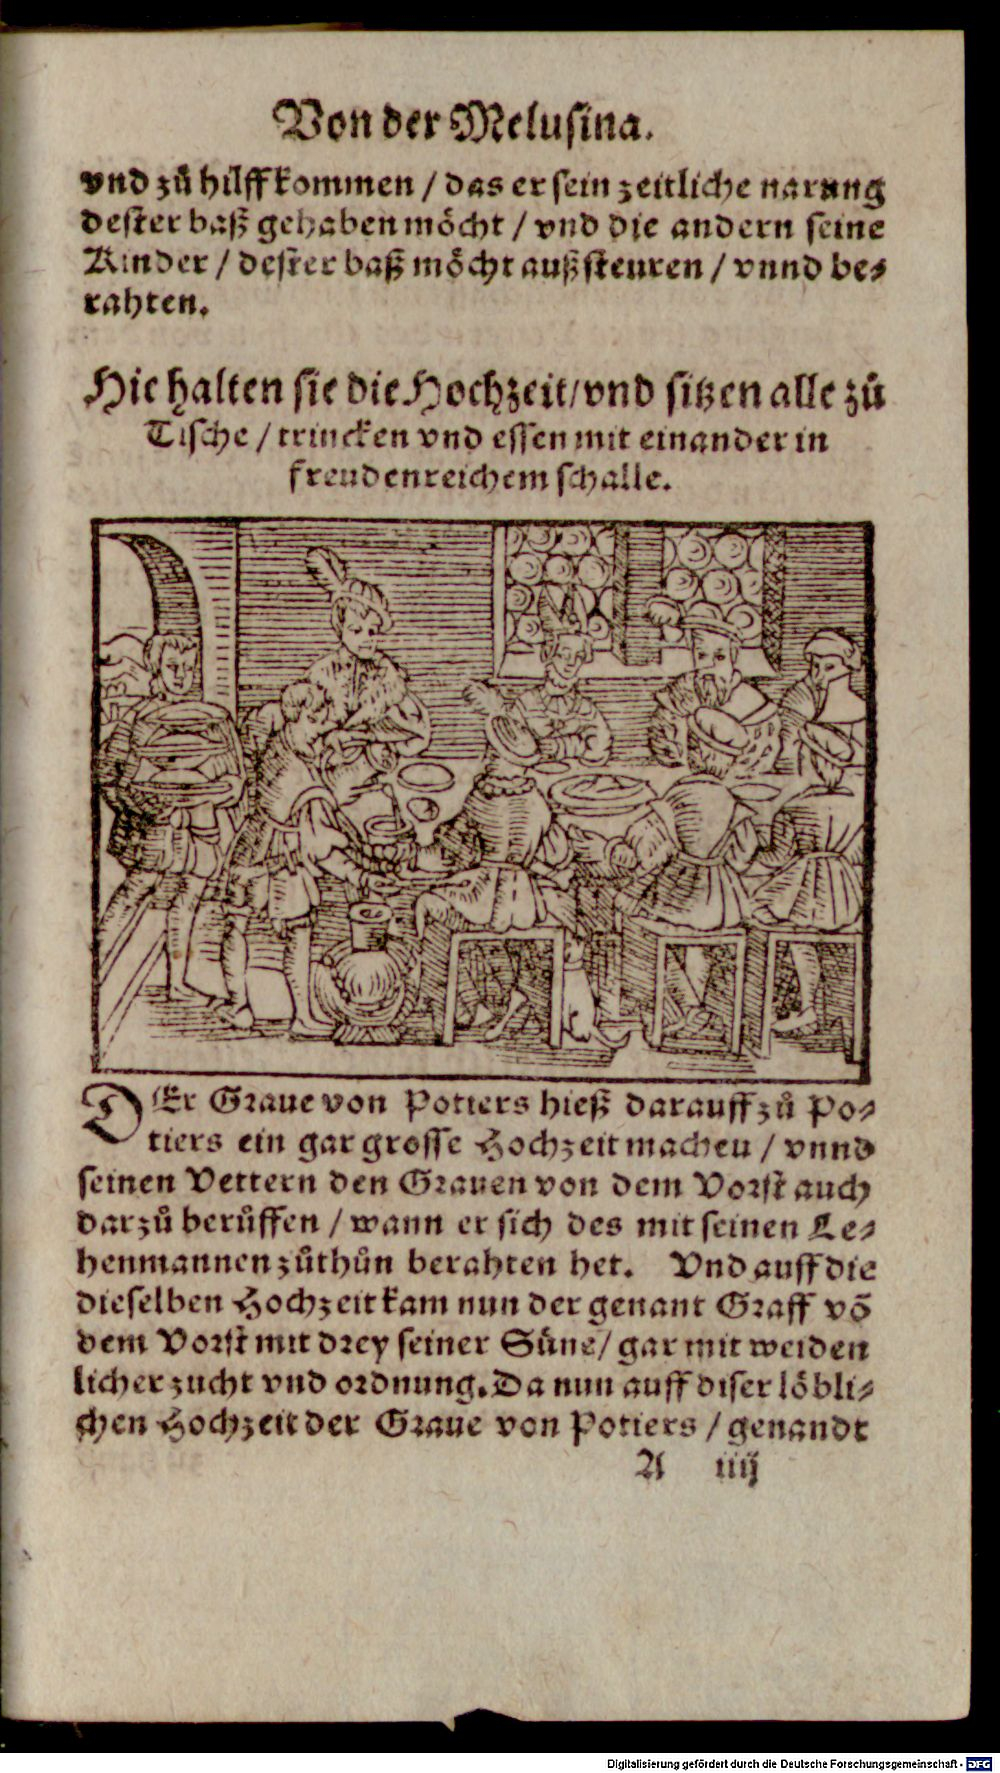 Von der Melusina.
vnd zů hilff kommen / das er sein zeitliche narung
dester baß gehaben möcht / vnd die andern seine
Kinder / dester baß möcht außsteuren / vnnd be⸗
rahten.
Hie halten sie die Hochzeit / vnd sitzen alle zů
Tische / trincken vnd essen mit einander in
freudenreichem schalle.
DEr Graue von Potiers hieß darauff zů Po⸗
tiers ein gar grosse Hochzeit macheu / vnnd
seinen Vettern den Grauen von dem Vorst auch
darzů berůffen / wann er sich des mit seinen Le⸗
henmannen zůthůn berahten het. Vnd auff die
dieselben Hochzeit kam nun der genant Graff võ
dem Vorst mit drey seiner Süne / gar mit weiden
licher zucht vnd ordnung. Da nun auff diser löbli⸗
chen Hochzeit der Graue von Potiers / genandt
A iiij
Digitalisierung gefördert durch die Deutsche Forschungsgemeinschaft - DFG